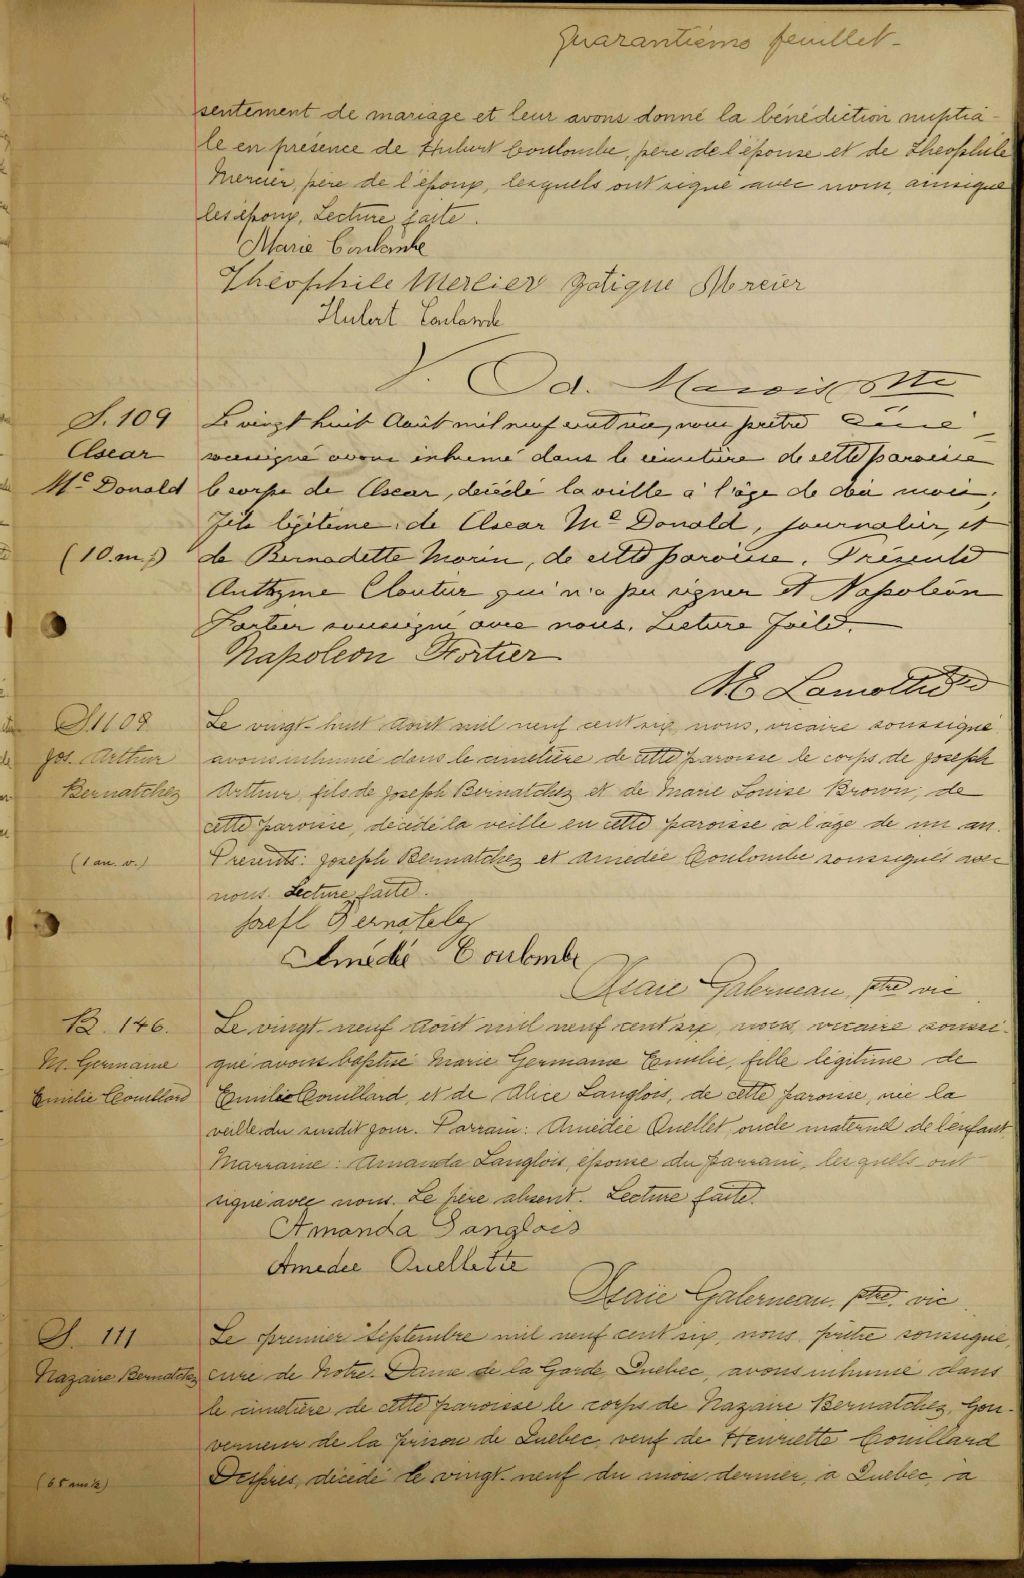 Quarantième feuillet -
sentement de mariage et leur avons donné la bénédiction nuptia-
le en présence de Hubert Coulombe, père de l'épouse et de Théophile
Mercier, père de l'époux, lesquels ont signé avec nous, ainsi que
les époux. Lecture faite.
Marie Coulombe
Théophile Mercier Zotique Mercier
Hubert Coulombe
V. Od. Marois ptre
S. 109
Oscar
Mc Donald
(10. m.)
Le vingt huit Août mil neuf cent six, nous prêtre curé
soussigné avons inhumé dans le cimetière de cette paroisse
le corps de Oscar, décédé la veille à l'âge de dix mois,
fils légitime de Oscar Mc Donald, journalier, et
de Bernadette Morin, de cette paroisse. Présents
Anthyme Cloutier qui n'a pu signer et Napoléon
Fortier soussigné avec nous. Lecture faite.
Napoleon Fortier
M E Lamothe Ptre
S. 1108
Jos. Arthur
Bernatchez
(1 an. v.)
Le vingt-huit Août mil neuf cent six, nous, vicaire soussigné
avons inhumé dans le cimetière de cette paroisse le corps de Joseph
Arthur, fils de Joseph Bernatchez et de Marie Louise Brown, de
cette paroisse, décédé la veille en cette paroisse à l'âge de un an.
Présents: Joseph Bernatchez et Amédée Coulombe soussignés avec
nous. Lecture faite.
Bernatchez
Amédé Coulombe
Isaïe Galerneau, ptre vic
B. 146.
M. Germaine
Emilie Couillard
Le vingt-neuf Août mil neuf cent six, nous, vicaire soussi-
gné avons baptisé Marie Germana Emilie, fille légitime de
Emilie Couillard, et de Alice Langlois, de cette paroisse, née la
veille du susdit jour. Parrain: Amédée Ouellet, oncle maternel de l'enfant,
Marraine: Amanda Langlois, épouse du parrain, lesquels ont
signé avec nous. Le père absent. Lecture faite.
Amanda Langlois
Amedee Ouellette
Isaïe Galerneau, ptre. vic
S. 111
Nazaire Bernatchez
(65 ans ½)
Le premier Septembre mil neuf cent six, nous, prêtre soussigné,
curé de Notre-Dame de la Garde, Québec, avons inhumé dans
le cimetière de cette paroisse le corps de Nazaire Bernatchez, Gou-
verneur de la prison de Québec, veuf de Henriette Couillard
Després, décédé le vingt-neuf du mois dernier, à Québec, à